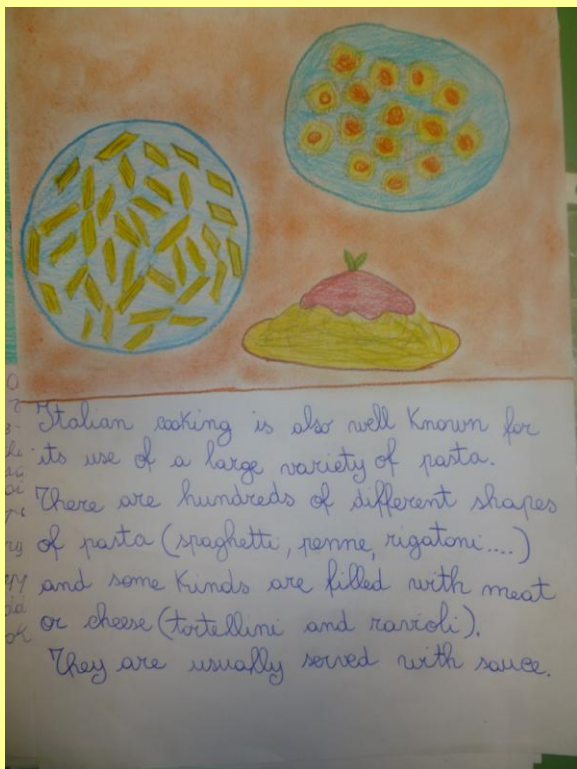 Italian cooking is also well Known for
its use of a large variety of pasta.
There are hundreds of different shapes
of pasta (spaghetti, penne, rigatoni....)
and some Kinds are filled with meat
or cheese (tortellini and ravioli).
They are usually served with sauce.